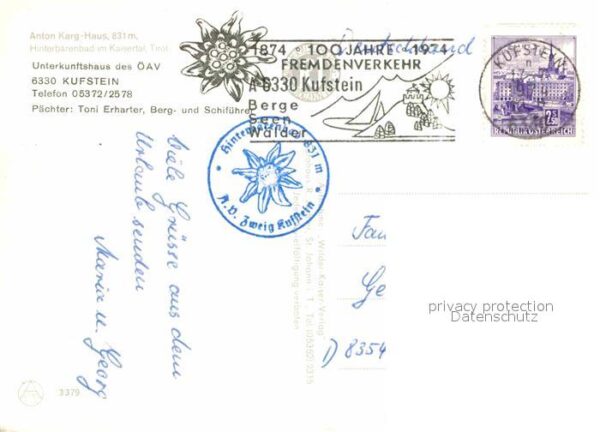 Anton Karg-Haus, 831 m,
Hinterbärenbad im Kaisertal, Tirol
Unterkunftshaus des ÖAV
6330 KUFSTEIN
Telefon 05372/2578
Pächter: Toni Erharter, Berg- und Schiführer
1874 · 100 JAHRE · 1974
FREMDENVERKEHR
A-6330 Kufstein
Berge
Seen
Wälder
Deutschland
KUFSTEIN
2.50
REPUBLIK ÖSTERREICH
Hinterbärenbad 831 m
A.V. Zweig Kufstein
Viele Grüsse aus dem
Urlaub senden
Maria u. Georg
Wilder-Kaiser-Verlag,
St. Johann i. T., Tel. (05352) 2315
Vervielfältigung verboten
Fam
Ge
D 8354
privacy protection
Datenschutz
3379